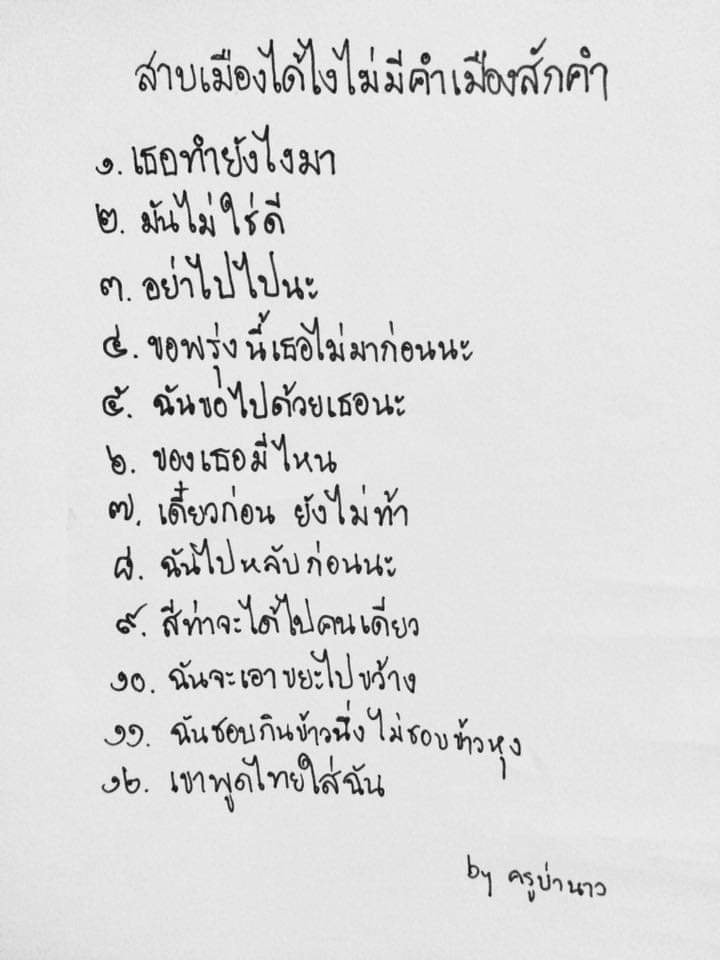 สาบเมืองได้ไงไม่มีคำเมืองสักคำ
๑. เธอทำยังไงมา
๒. มันไม่ใช่ดี
๓. อย่าไปไปนะ
๔. ขอพรุ่งนี้เธอไม่มาก่อนนะ
๕. ฉันขอไปด้วยเธอนะ
๖. ของเธอมีไหน
๗. เดี๋ยวก่อน ยังไม่ท้า
๘. ฉันไปหลับก่อนนะ
๙. สีท่าจะได้ไปคนเดียว
๑๐. ฉันจะเอาขยะไปขว้าง
๑๑. ฉันชอบกินข้าวนึ่ง ไม่ชอบข้าวหุง
๑๒. เขาพูดไทยใส่ฉัน
by ครูบ่านาว